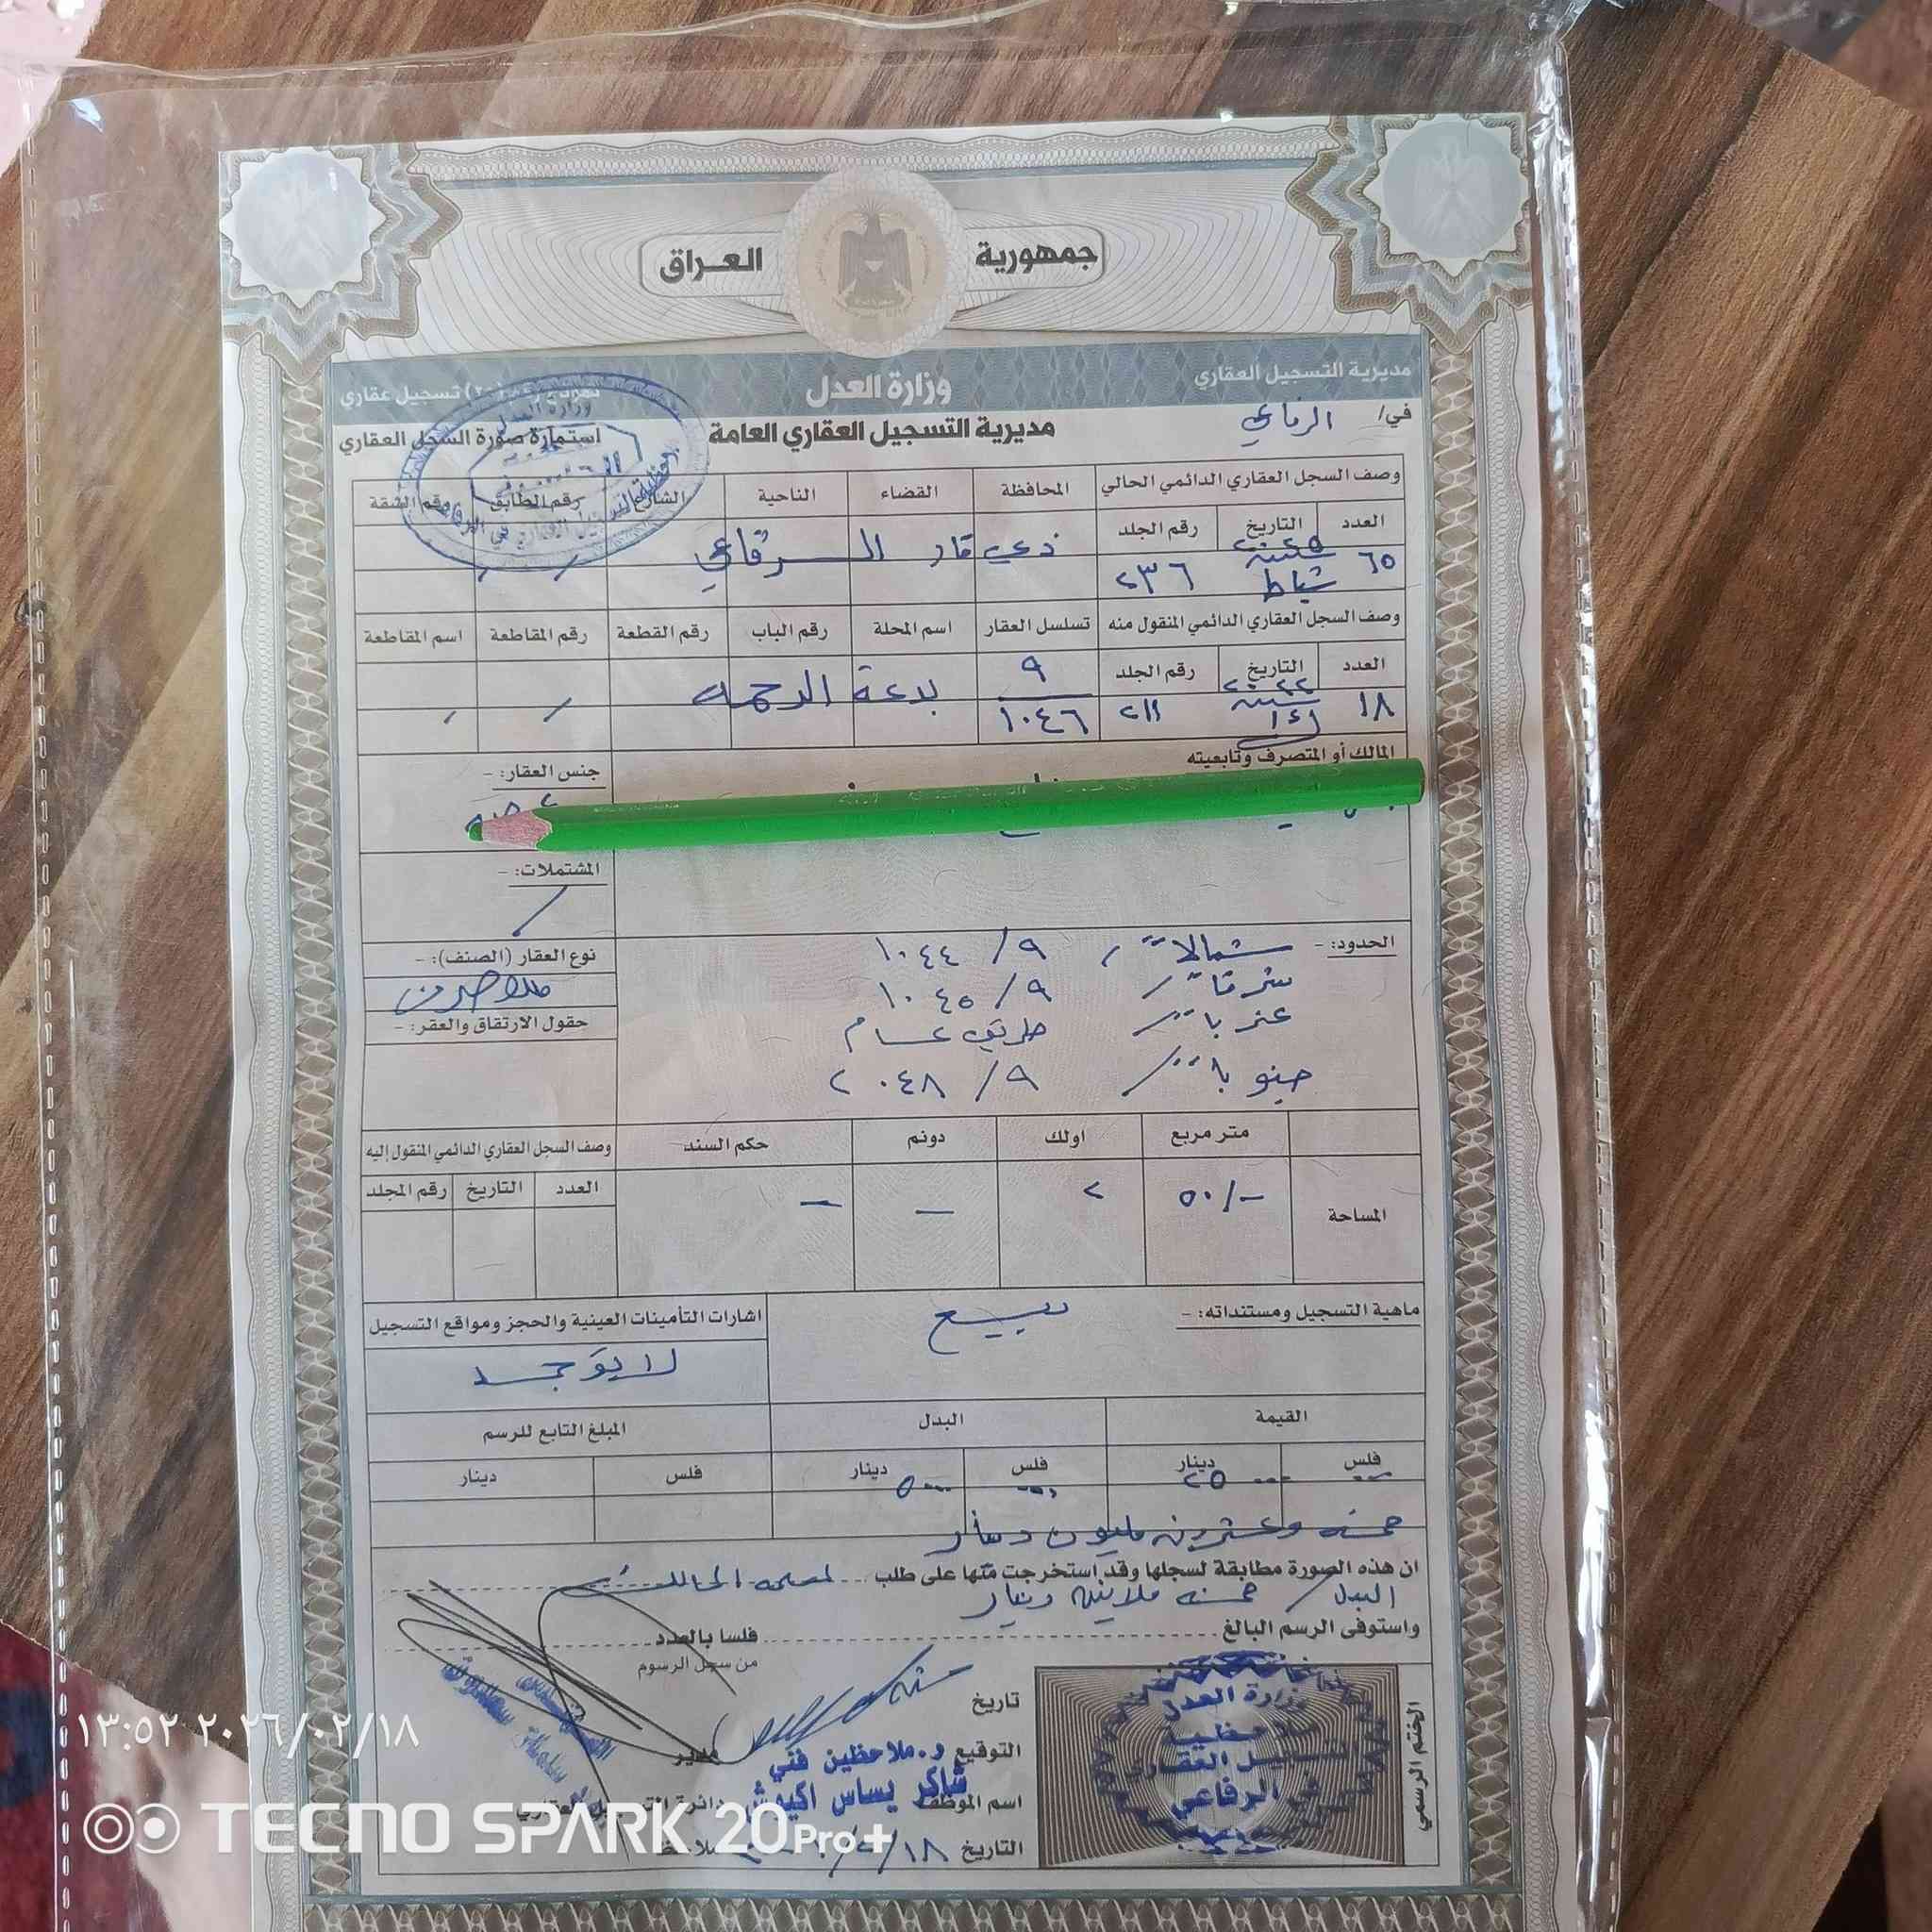 جمهورية العراق
مديرية التسجيل العقاري
وزارة العدل
تسجيل عقاري
في/ الرفاعي
مديرية التسجيل العقاري العامة
استمارة صورة السجل العقاري
وصف السجل العقاري الدائمي الحالي المحافظة القضاء الناحية الشارع رقم الطابق ورقم الشقة
العدد التاريخ رقم الجلد
٦٥ ٢٠٢٥ شباط ٢٣٦ ذي قار الرفاعي
وصف السجل العقاري الدائمي المنقول منه تسلسل العقار اسم المحلة رقم الباب رقم القطعة رقم المقاطعة اسم المقاطعة
العدد التاريخ رقم الجلد
١٨ ٢٠٢٢ ٢١١ ٩ ١٠٤٦ بدعة الرحمه
المالك أو المتصرف وتابعيته
جنس العقار: -
المشتملات: -
الحدود: - شمالاً / ٩/ ١٠٤٤
شرقاً / ٩/ ١٠٤٥
غرباً / طريق عام
جنوباً / ٩/ ٢٠٤٨
نوع العقار (الصنف): -
ملك صرف
حقول الارتفاق والعقر: -
متر مربع اولك دونم حكم السند وصف السجل العقاري الدائمي المنقول إليه
العدد التاريخ رقم المجلد
المساحة ٥٠/- ٢ — —
ماهية التسجيل ومستنداته: - بيع
اشارات التأمينات العينية والحجز ومواقع التسجيل
لا يوجد
القيمة البدل المبلغ التابع للرسم
فلس دينار فلس دينار فلس دينار
خمسه وعشرين مليون دينار
ان هذه الصورة مطابقة لسجلها وقد استخرجت منها على طلب
البدل / خمسه ملايين دينار
واستوفى الرسم البالغ فلسا بالعدد
من سجل الرسوم
الختم الرسمي
وزارة العدل
ملاحظية
التسجيل العقاري
في الرفاعي
تاريخ
التوقيع ر.ملاحظين فني مدير
اسم الموظف شاكر يساس اكيوش دائرة التسجيل العقاري
التاريخ
١٣:٥٢ ٢٠٢٦/٠٢/١٨
TECNO SPARK 20Pro+